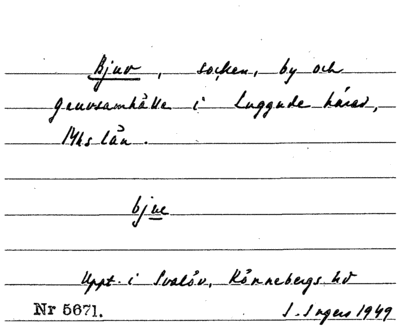 Bjuv, socken, by och
gruvsamhälle i Luggude härad,
Mhs län.
bjue
Uppt. i Svalöv, Rönnebergs hd
Nr 5671. I. Ingers 1949